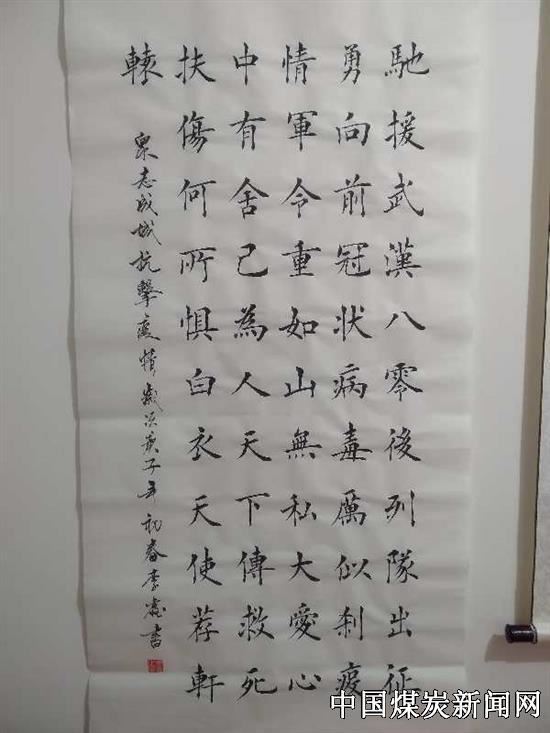 馳援武漢八零後列隊出征
勇向前冠状病毒厲似刹疫
情軍令重如山無私大愛心
中有舍己為人天下傳救死
扶傷何所惧白衣天使荐軒
轅
衆志成城抗擊疫情歲次庚子年初春李書
中国煤炭新闻网